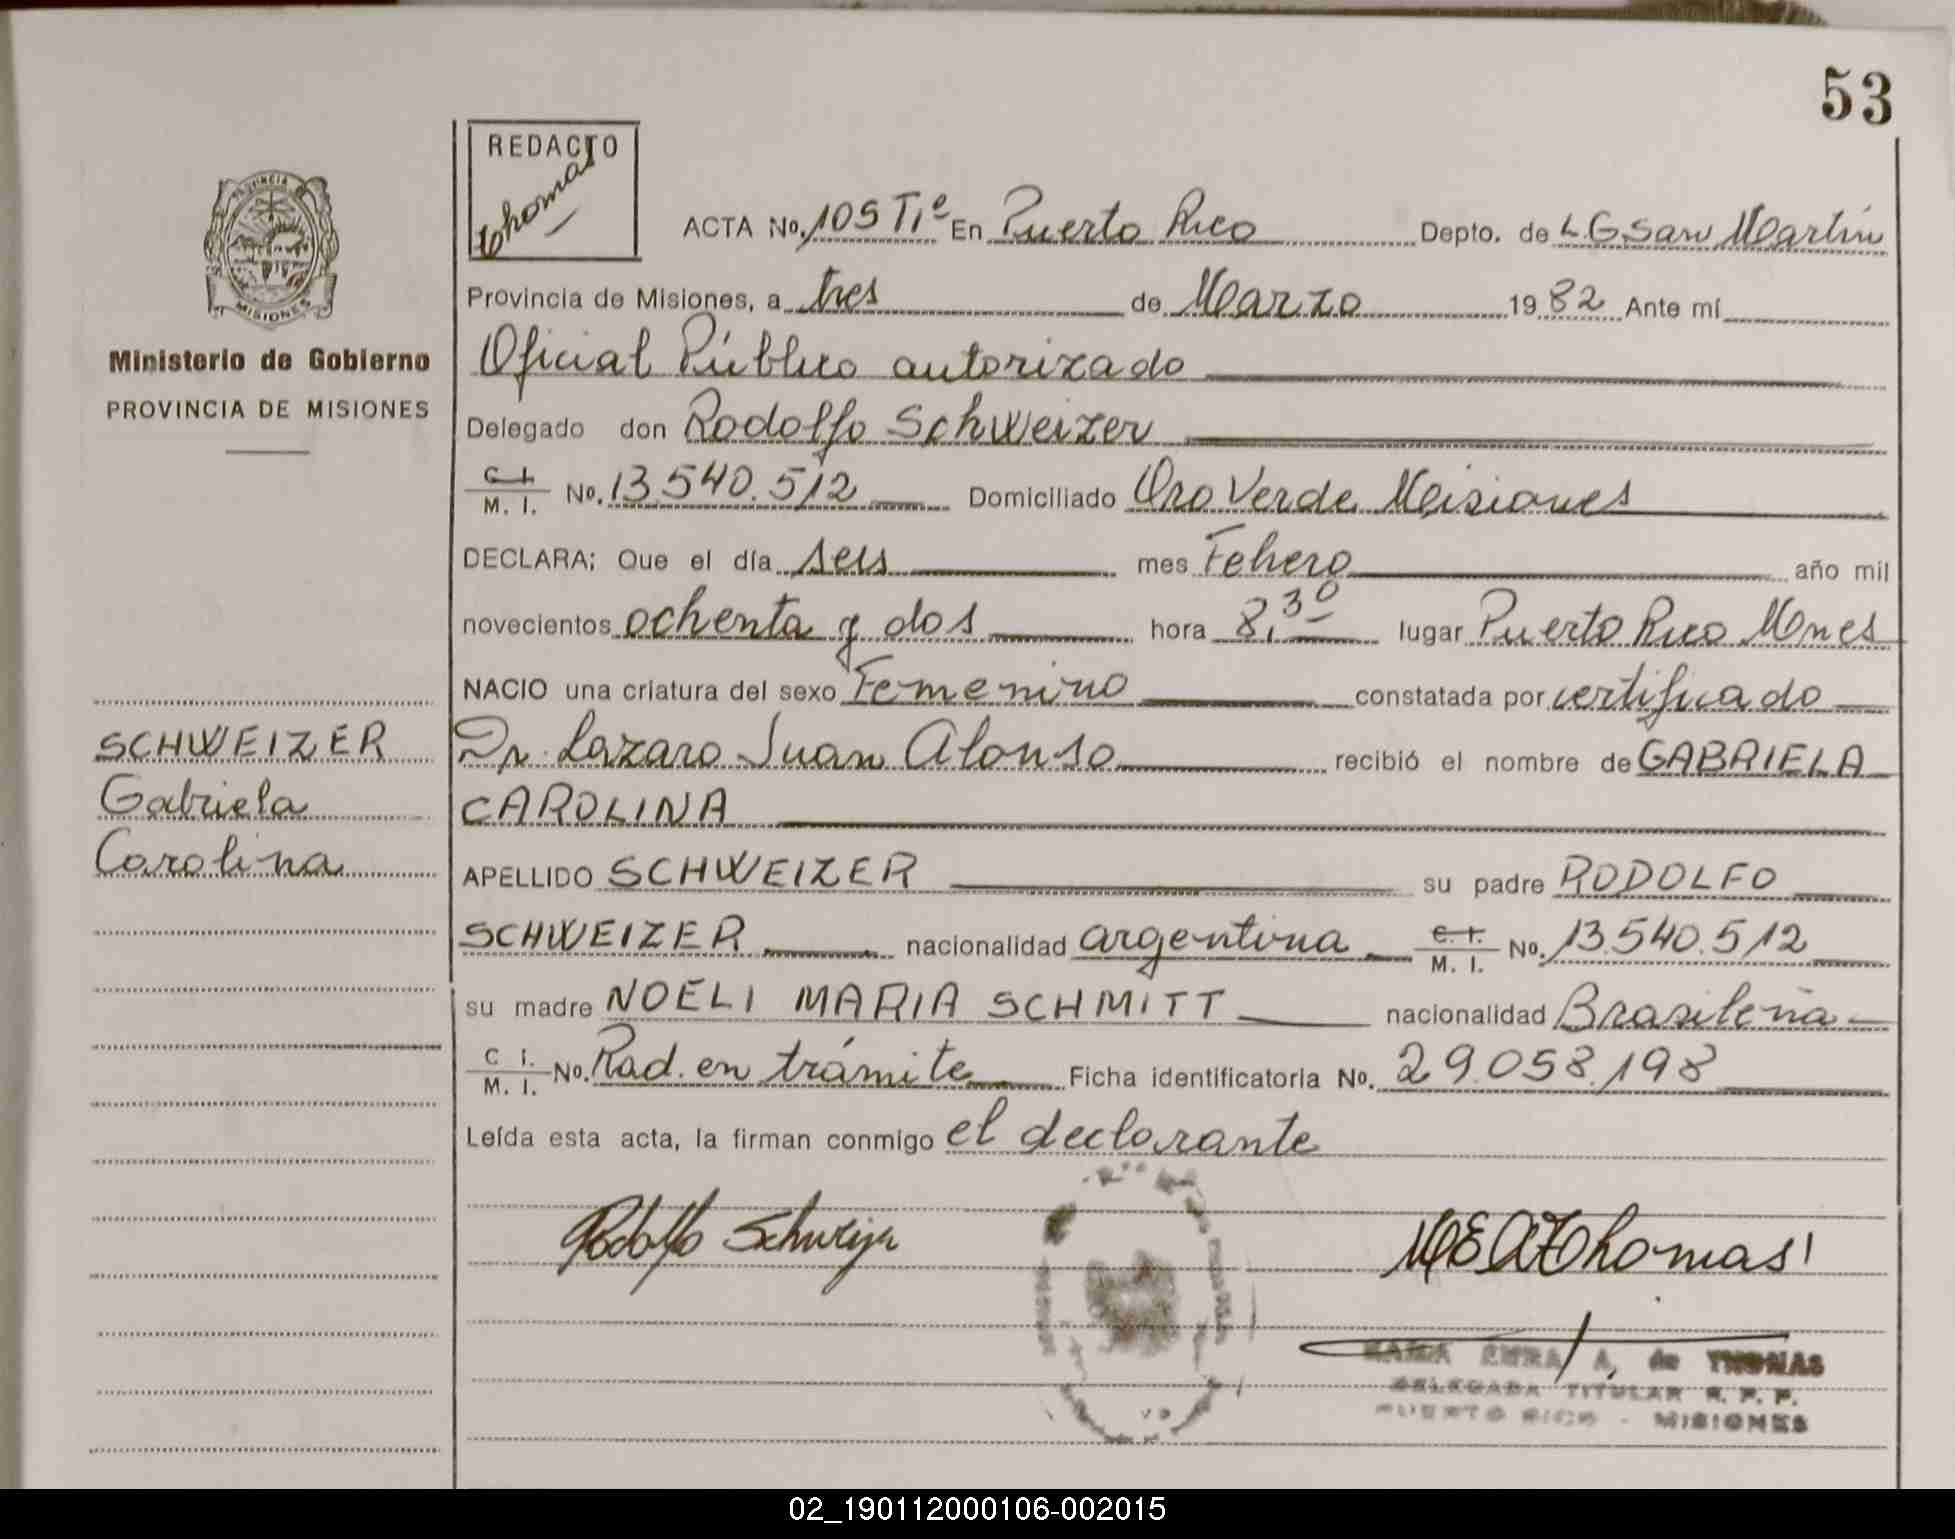 53
REDACTO
Thomas
ACTA No. 105 TIº En Puerto Rico Depto. de L G San Martín
Provincia de Misiones, a tres de Marzo 1982 Ante mí
Oficial Público autorizado
Delegado don Rodolfo Schweizer
C. I. M. I. No. 13.540.512 Domiciliado Oro Verde Misiones
DECLARA: Que el día seis mes Febrero año mil
novecientos ochenta y dos hora 8,30 lugar Puerto Rico Mnes
NACIO una criatura del sexo Femenino constatada por certificado
Dr. Lazaro Juan Alonso recibió el nombre de GABRIELA
CAROLINA
APELLIDO SCHWEIZER su padre RODOLFO
SCHWEIZER nacionalidad argentina C. I. M. I. No. 13.540.512
su madre NOELI MARIA SCHMITT nacionalidad Brasileña
C I. M. I. No. Rad. en trámite Ficha identificatoria No. 29.058.198
Leída esta acta, la firman conmigo el declarante
Rodolfo Schweizer
M E A T homas
MARIA ELENA A. de THOMAS
DELEGADA TITULAR R. P. P.
PUERTO RICO - MISIONES
PROVINCIA DE
MISIONES
Ministerio de Gobierno
PROVINCIA DE MISIONES
SCHWEIZER
Gabriela
Carolina
02_190112000106-002015